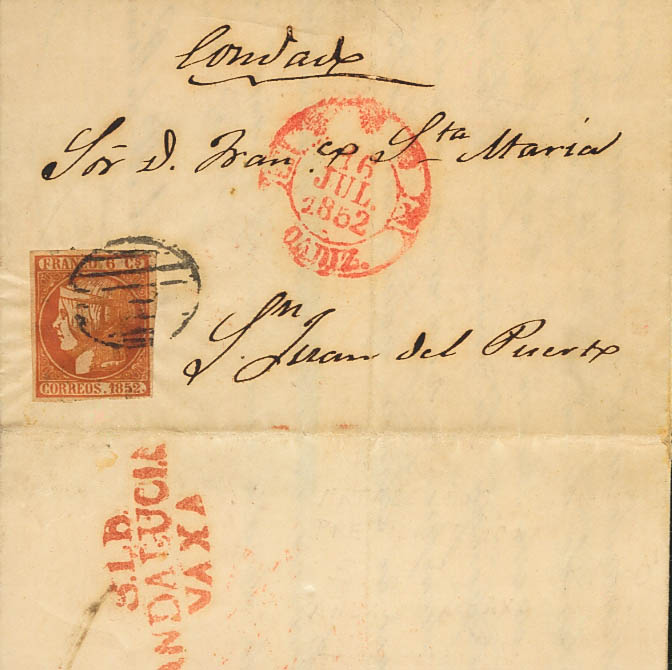 Condado
Sor. D. Franco. Sta Maria
16
JUL.
1852
CADIZ.
FRANCO. 6 Cs
CORREOS. 1852.
Sn. Juan del Puerto
S.I.D.
ANDALUCIA
VAXA